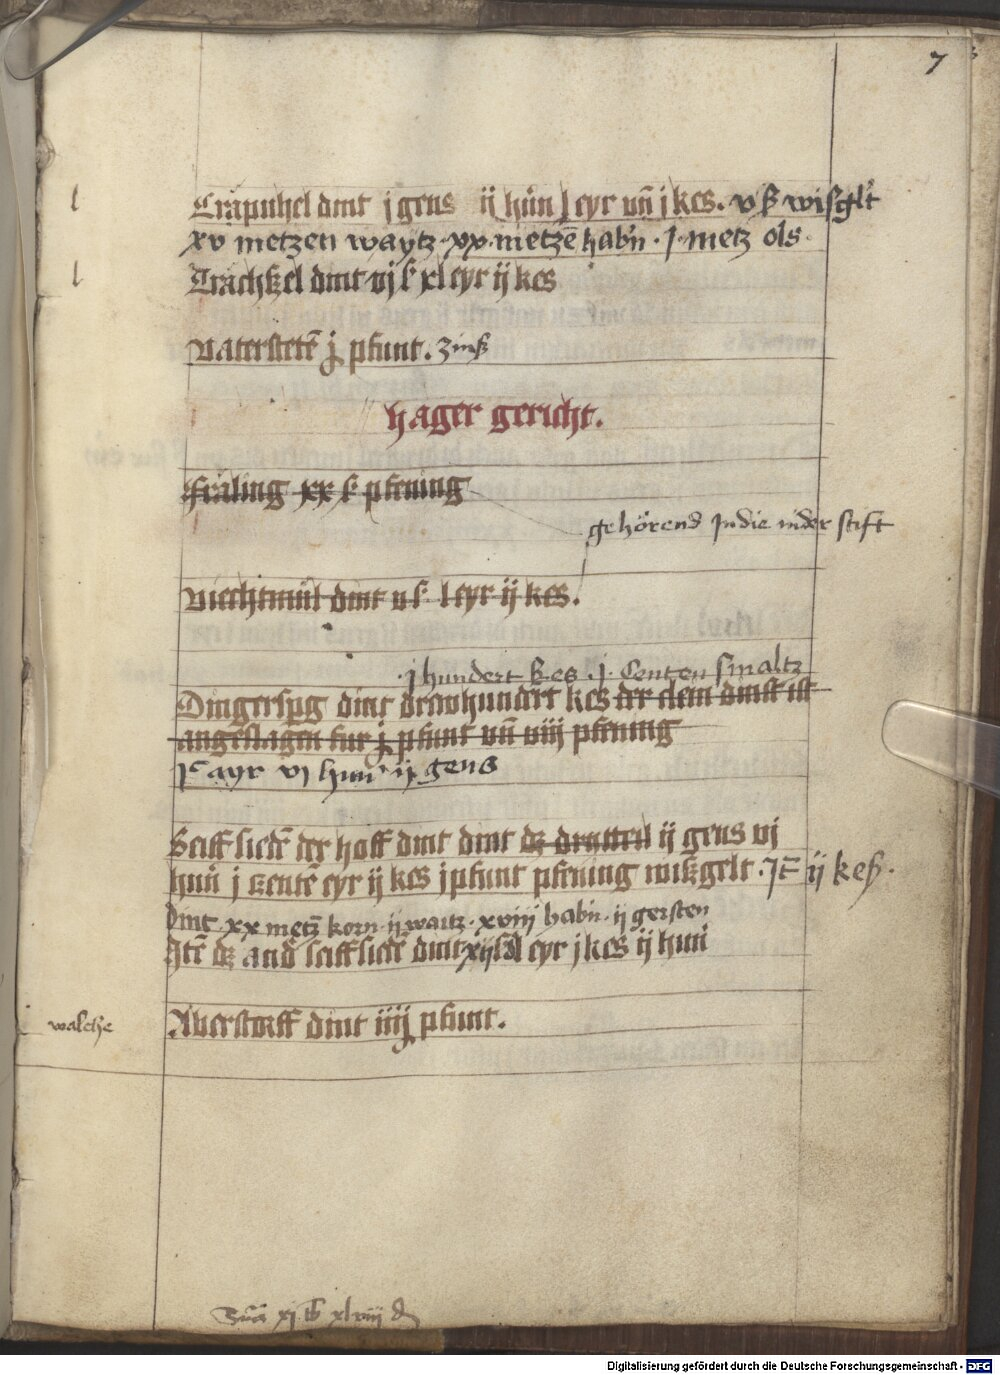 7
Crăpuhel dint j gens ij hūn l eyr vn̄ j kes. v ß wisgelt
xv metzen waytz · xx · metzē hab'n · J · metz ols ·
Trachsel dint vj ß xl eyr ij kes
Vaterstetē j pfunt. zinß
hager gericht.
Fräling xx ß pfening
gehörend Jn die nider stift
Viechtmül dint v ß l eyr ij kes.
· j hundert kes · J · Centen smaltz
Dingersperg dint drewhundert kes der clein dinst ist
angeslagen fur j pfunt vn̄ viij pfening
vj hun' ij gens
der hoff dint dint dz dritteil ij gens vj
hun j centē eyr ij kes j pfunt pfening wißgelt · Jt ij keß ·
dint · xx metz korn · ij waitz · xviij hab'n · ij gersten
Itē dz and' dint l eyr j kes ij hun
walche
Averstorff dint iiij pfunt.
Sūa xj lb xlviij d
Digitalisierung gefördert durch die Deutsche Forschungsgemeinschaft - DFG